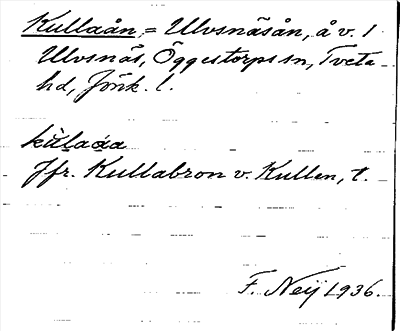 Kullaån, = Ulvsnäsån, å v. l
Ulvsnäs, Öggestorps sn, Tveta
hd, Jönk. l.
kùlaòa
Jfr. Kullabron v. Kullen, t.
F. Neij 1936.